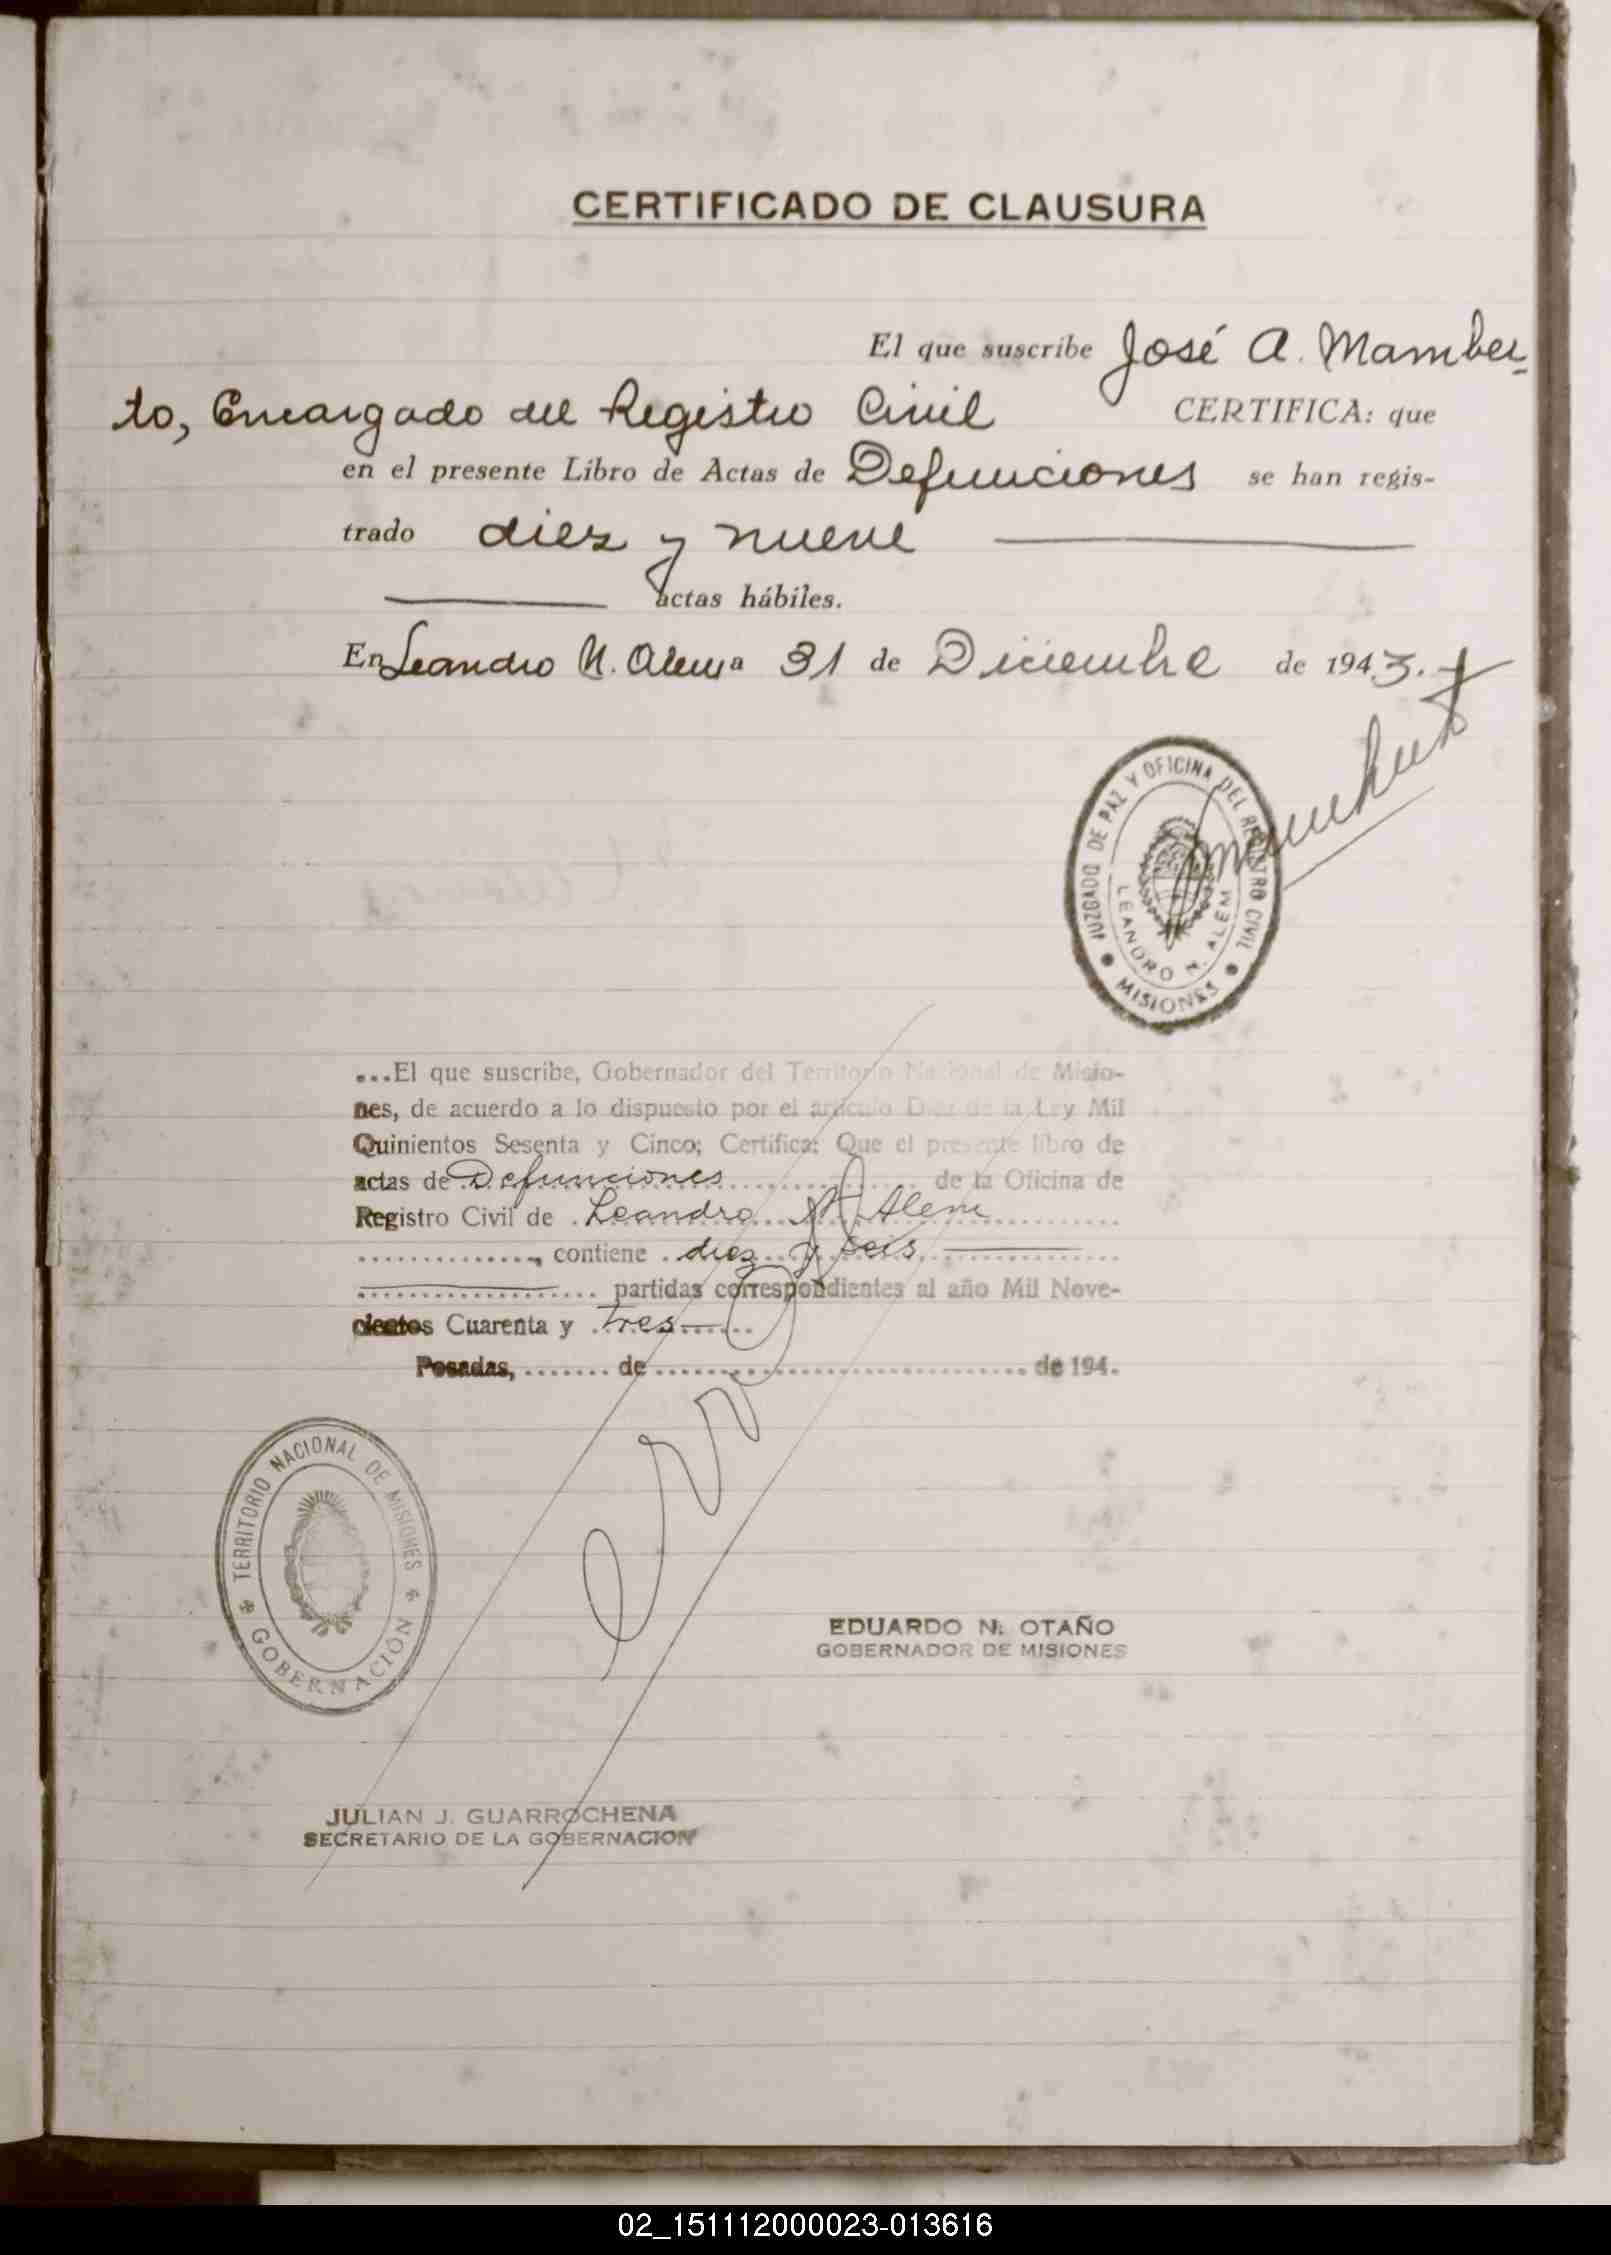 CERTIFICADO DE CLAUSURA
El que suscribe José A. Mamber-
to, Encargado del Registro Civil CERTIFICA: que
en el presente Libro de Actas de Defunciones se han regis-
trado diez y nueve
actas hábiles.
En Leandro N. Alem a 31 de Diciembre de 1943.-
JUZGADO DE PAZ Y OFICINA DEL REGISTRO CIVIL
LEANDRO N. ALEM
MISIONES
...El que suscribe, Gobernador del Territorio Nacional de Misio-
nes, de acuerdo a lo dispuesto por el artículo Diez de la Ley Mil
Quinientos Sesenta y Cinco; Certifica: Que el presente libro de
actas de Defunciones de la Oficina de
Registro Civil de Leandro N. Alem
, contiene diez y seis
partidas correspondientes al año Mil Nove-
cientos Cuarenta y tres
Posadas, ....... de ............................... de 194.
error
TERRITORIO NACIONAL DE MISIONES
GOBERNACIÓN
EDUARDO N. OTAÑO
GOBERNADOR DE MISIONES
JULIAN J. GUARROCHENA
SECRETARIO DE LA GOBERNACION
02_151112000023-013616